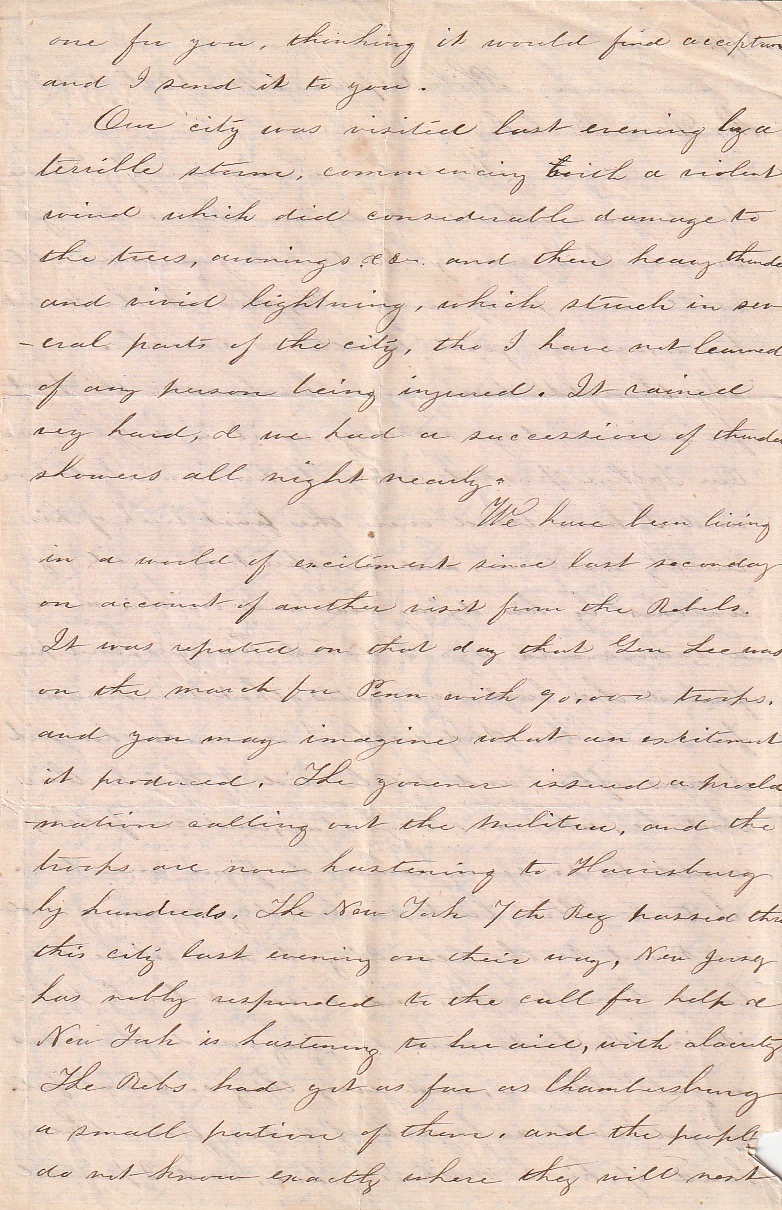 one for you, thinking it would find acceptan
and I send it to you.
Our city was visited last evening by a
terrible storm, commencing with a violent
wind which did considerable damage to
the trees, awnings &c. and then heavy thunde
and vivid lightning, which struck in sev
-eral parts of the city, tho I have not learned
of any person being injured. It rained
very hard, & we had a succession of thunde
showers all night nearly.
We have been living
in a world of excitement since last seconday
on account of another visit from the Rebels.
It was reputed on that day that Gen Lee was
on the march for Penn with 90,000 troops.
and you may imagine what an excitement
it produced. The govenor issued a procla
-mation calling out the militia, and the
troops are now hastening to Harrisburg
by hundreds. The New York 7th Reg passed thr
this city last evening on their way, New Jersey
has nobly responded to the call for help &
New York is hastening to her aid, with alacrity
The Rebs had got as far as Chambersburg
a small portion of them, and the people
do not know exactly where they will next